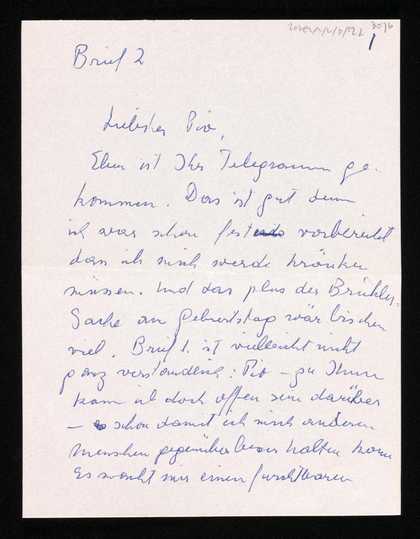 Brief 2
Liebster Pio,
Eben ist Ihr Telegramm ge-
kommen. Das ist gut denn
ich war schon fest vorbereitet
dass ich mich werde kränken
müssen. Und das plus der
Sache am Geburtstag wär bischen
viel. Brief 1. ist vielleicht nicht
ganz verständlich: Pio – zu Ihnen
kann ich doch offen sein darüber
– schon damit ich mich anderen
Menschen gegenüber besser halten kann
Es macht mir einen furchtbaren